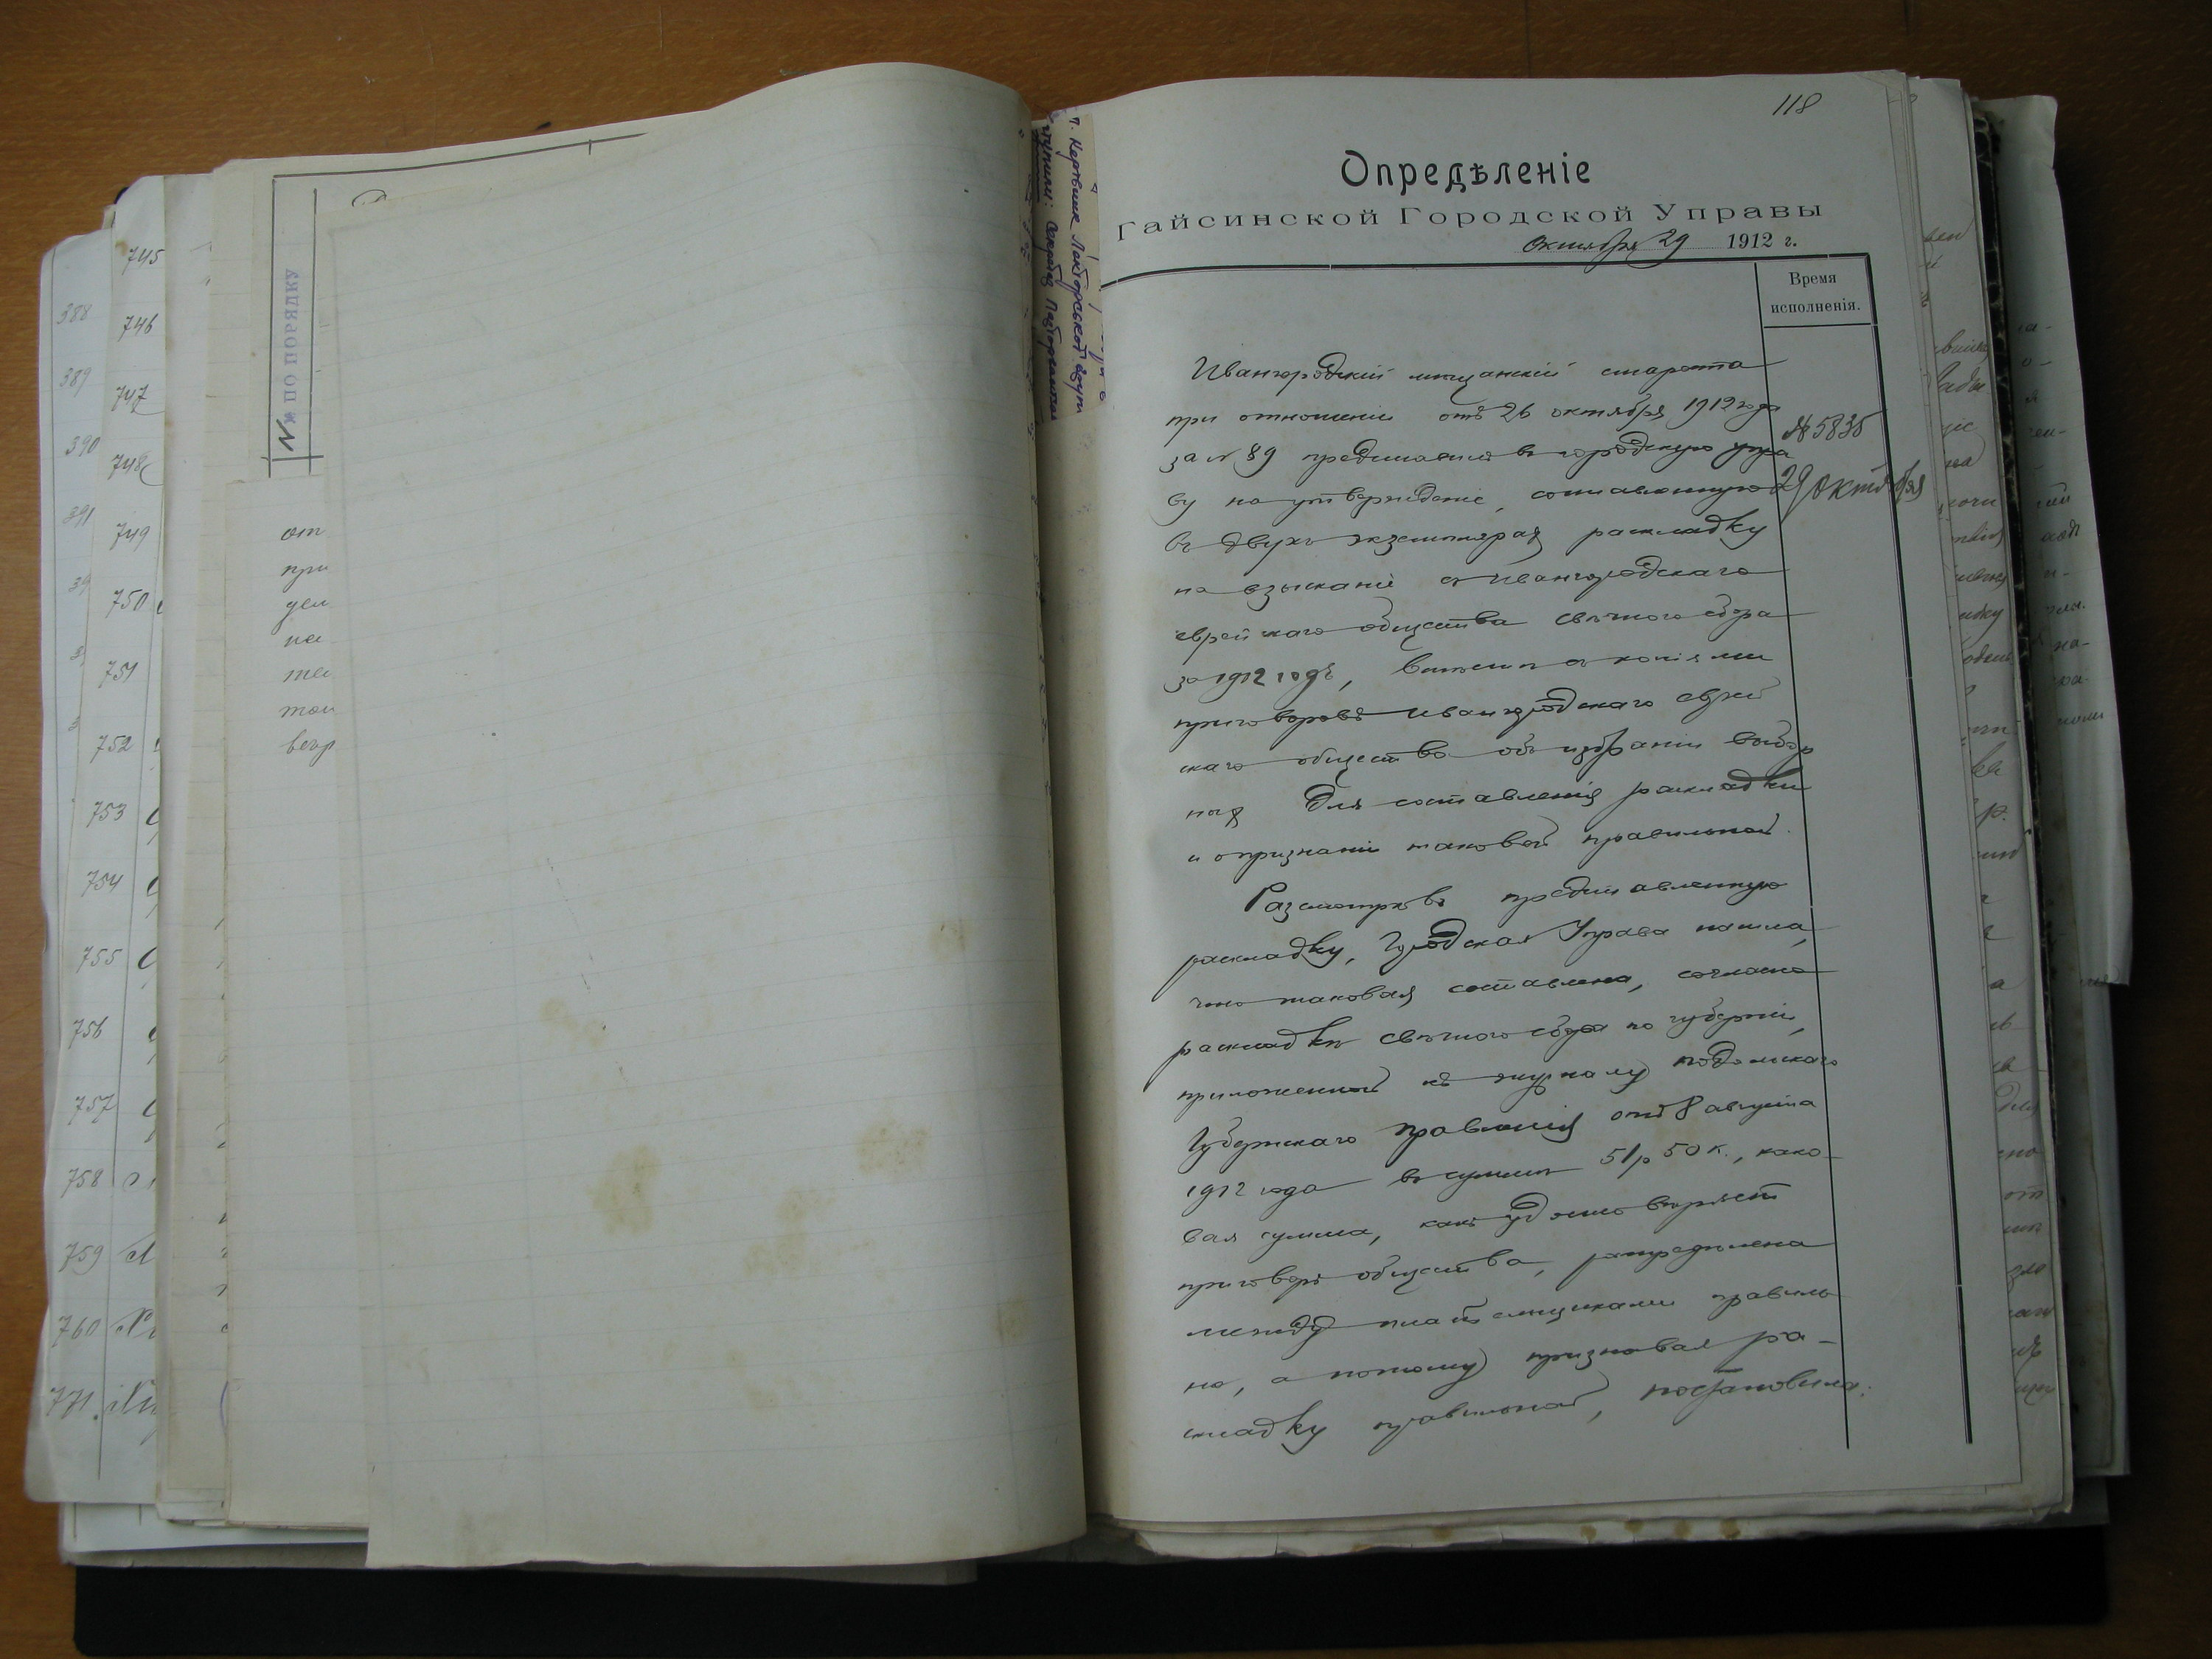 745
746
747
748
749
750
751
752
753
754
755
756
757
758
759
760
771
388
389
390
391
№ ПО ПОРЯДКУ
от
при
118
Опредѣленіе
Гайсинской Городской Управы
Октября 29 1912 г.
Время
исполненія.
№ 5835
29 октября
Ивангородскій мѣщанскій староста
при отношеніи отъ 26 октября 1912 года
за № 89 представилъ въ городскую упра
ву на утвержденіе, составленную
въ двухъ экземплярах раскладку
на взысканіе съ Ивангородскаго
еврейскаго общества свѣчного сбора
за 1912 годъ, вмѣстѣ съ копіями
приговоровъ Ивангородскаго еврей
скаго общества объ избраніи выбор
ных для составленія раскладки
и о признаніи таковой правильной.
Разсмотрѣвъ представленную
раскладку, Городская Управа нашла,
что таковая составлена, согласно
раскладкѣ свѣчного сбора по губерніи,
приложенной къ журналу Подольскаго
Губернскаго Правленія отъ 8 августа
1912 года въ суммѣ 51 р 50 к., како-
вая сумма, какъ удостовѣряетъ
приговоръ общества, распредѣлена
между плательщиками правиль
но, а потому признавая ра-
складку правильной, постановила: